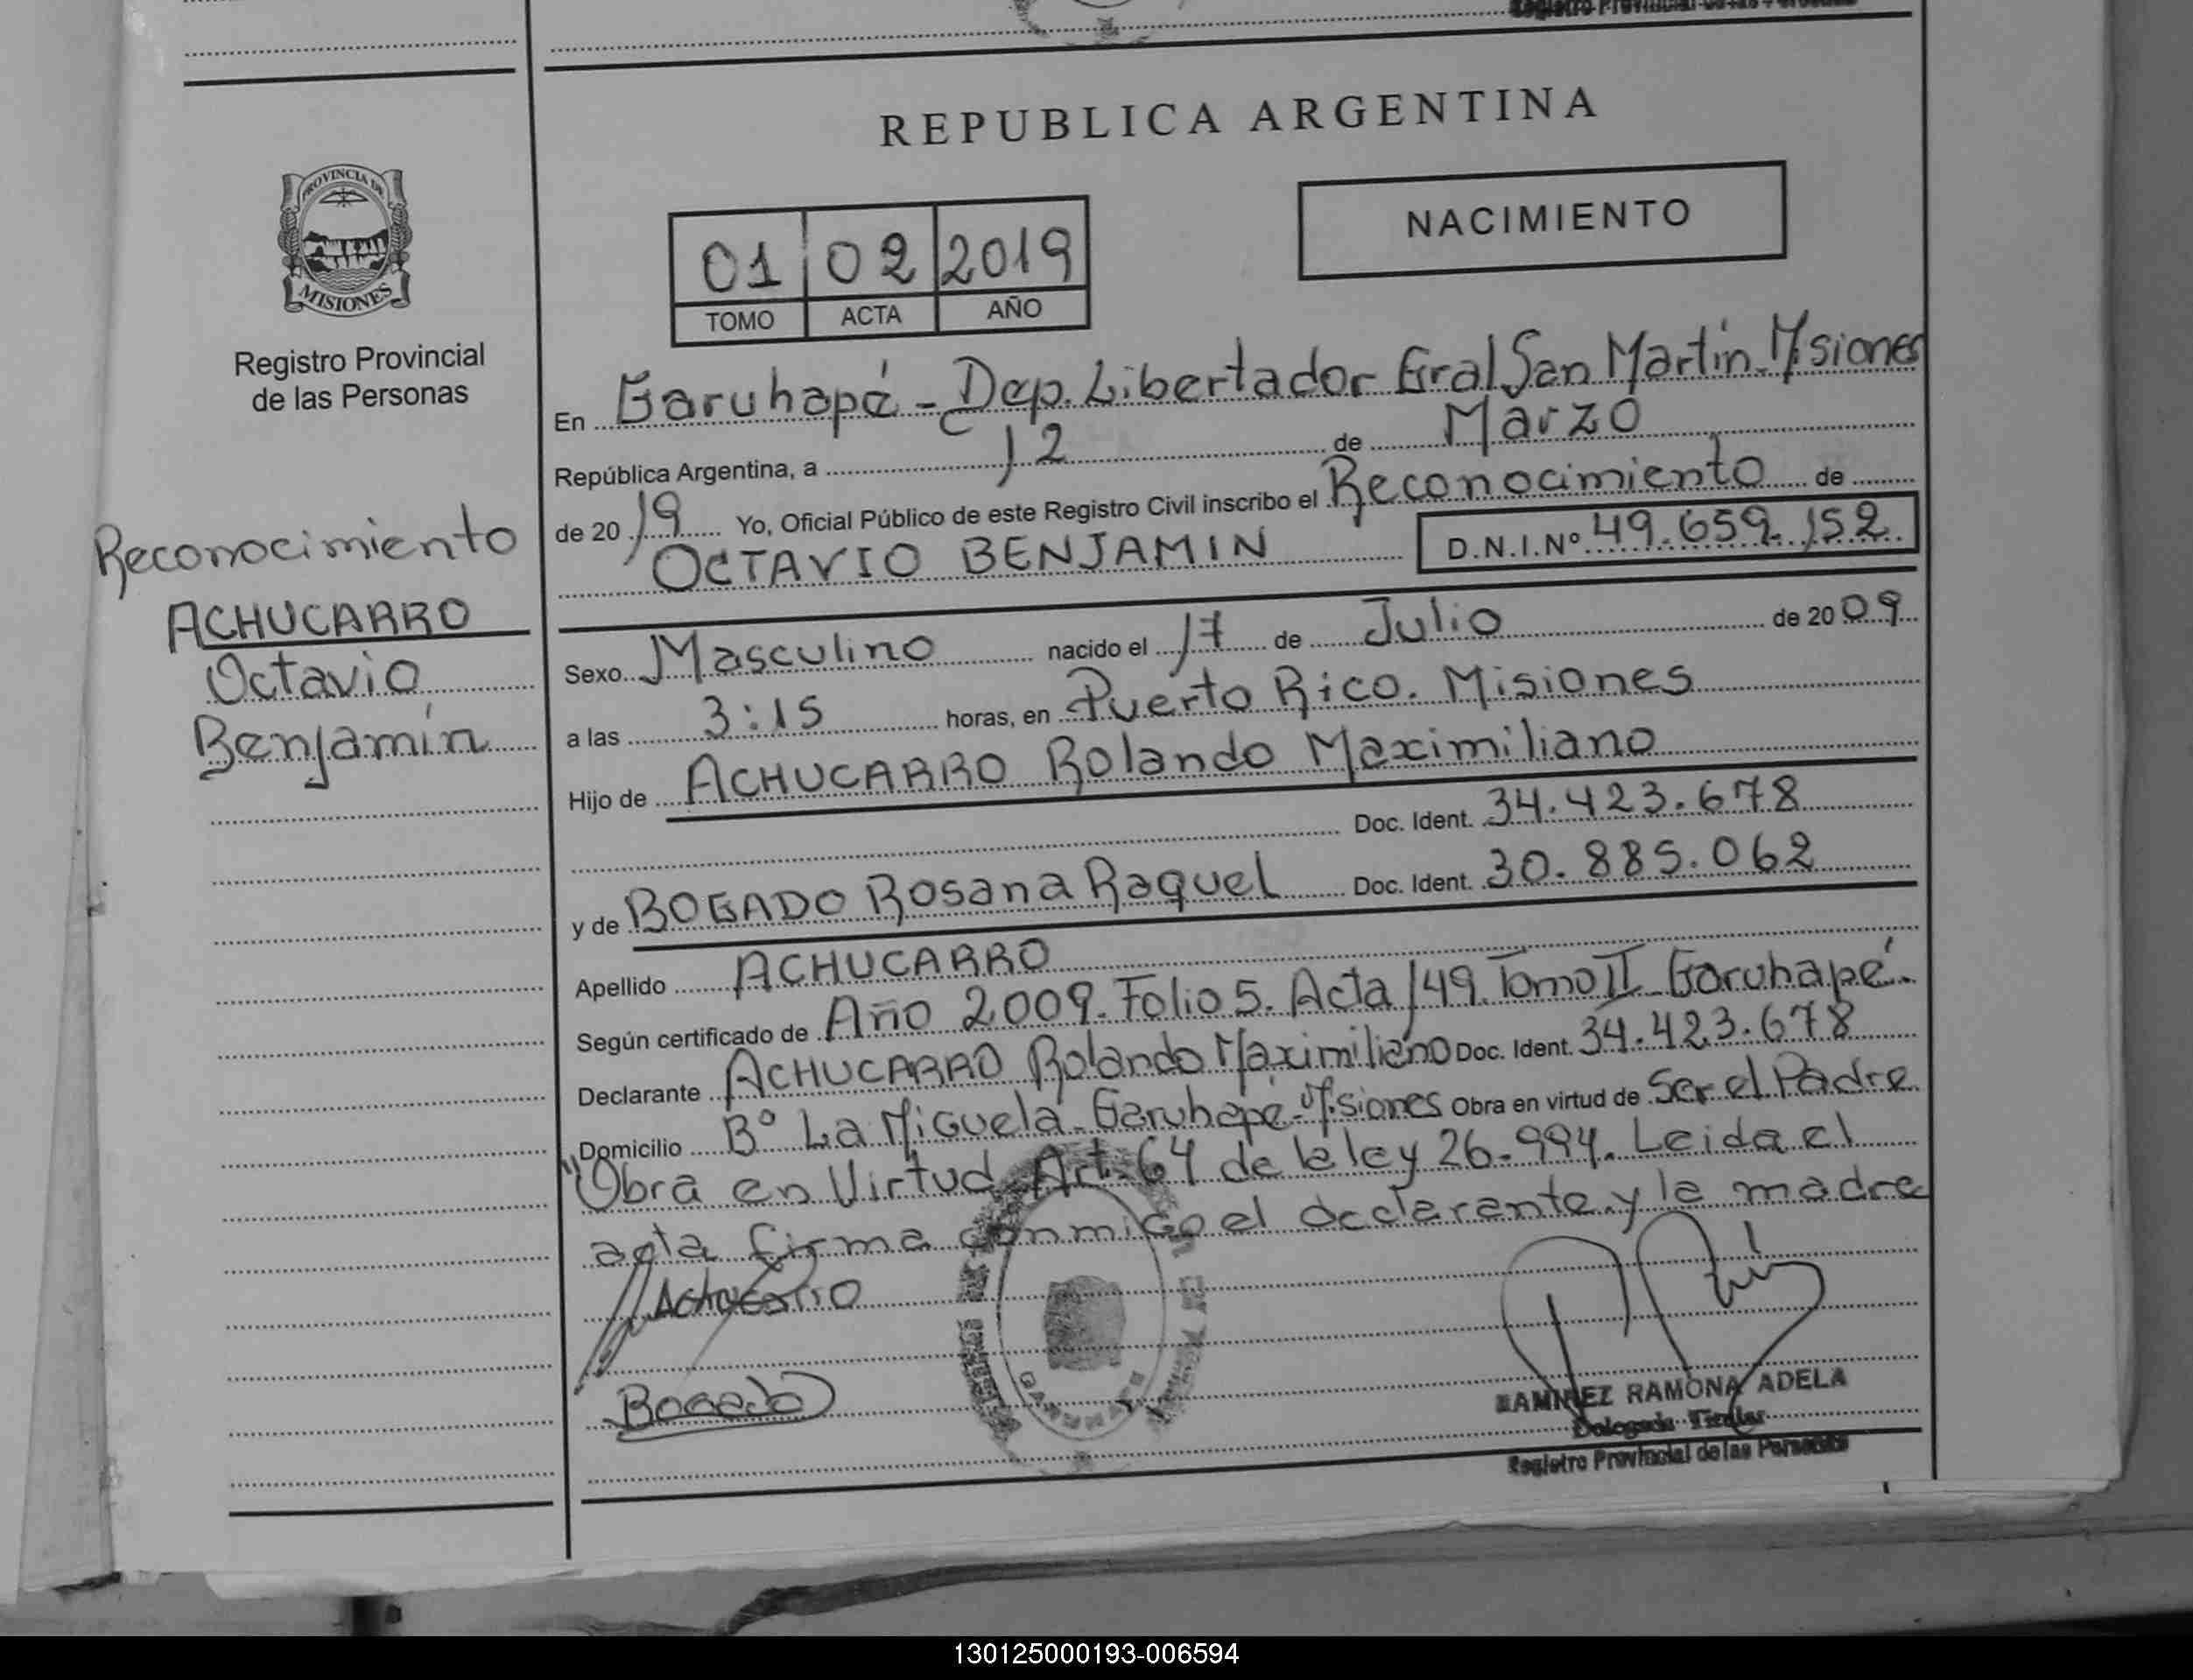 REPUBLICA ARGENTINA
PROVINCIA DE
MISIONES
Registro Provincial
de las Personas
NACIMIENTO
01 02 2019
TOMO ACTA AÑO
En Garuhapé - Dep. Libertador Gral San Martín - Misiones
República Argentina, a 12 de Marzo
de 2019 Yo, Oficial Público de este Registro Civil inscribo el Reconocimiento de
OCTAVIO BENJAMIN D.N.I.Nº 49.659.152
Reconocimiento
ACHUCARRO
Octavio
Benjamín
Sexo Masculino nacido el 17 de Julio de 2009
a las 3:15 horas, en Puerto Rico. Misiones
Hijo de ACHUCARRO Rolando Maximiliano
Doc. Ident. 34.423.678
y de BOGADO Rosana Raquel Doc. Ident. 30.885.062
Apellido ACHUCARRO
Según certificado de Año 2009. Folio 5. Acta 149. Tomo II Garuhapé.
Declarante ACHUCARRO Rolando Maximiliano Doc. Ident. 34.423.678
Domicilio Bº La Miguela - Garuhapé - Misiones Obra en virtud de Ser el Padre
"Obra en Virtud Art. 64 de la ley 26.994. Leida el
acta firma conmigo el declarante y la madre
Achucarro
Bogado
GARUHAPE
RAMIREZ RAMONA ADELA
Delegada Titular
Registro Provincial de las Personas
130125000193-006594